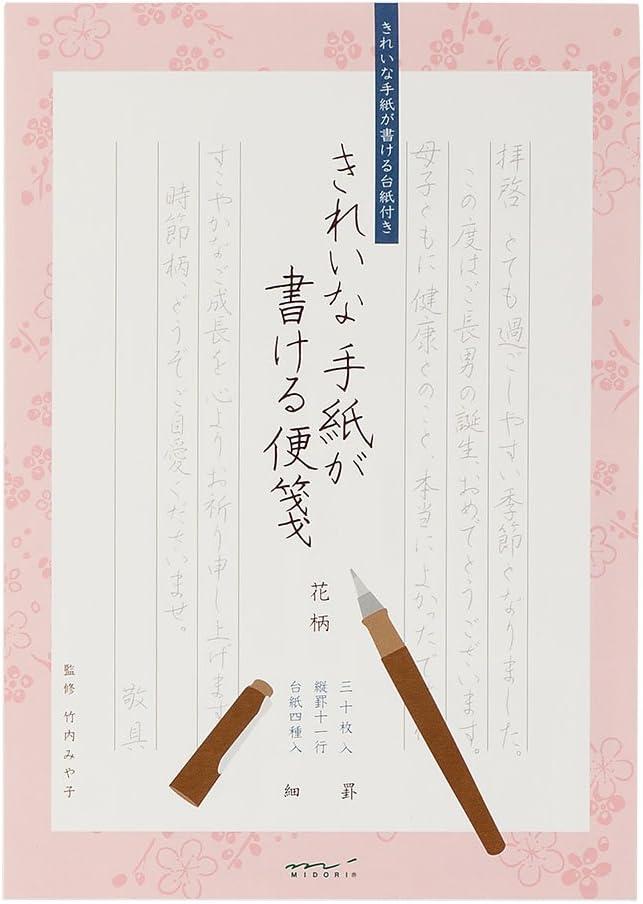 きれいな手紙が書ける台紙付き
拝啓 とても過ごしやすい季節となりました。
この度はご長男の誕生、おめでとうございます。
母子ともに健康とのこと、本当によかったで
きれいな手紙が
書ける便箋
花柄
三十枚入
縦罫十一行
台紙四種入
細 罫
すこやかなご成長を心よりお祈り申し上げます
時節柄、どうぞご自愛くださいませ。
敬具
監修 竹内みや子
MIDORI®